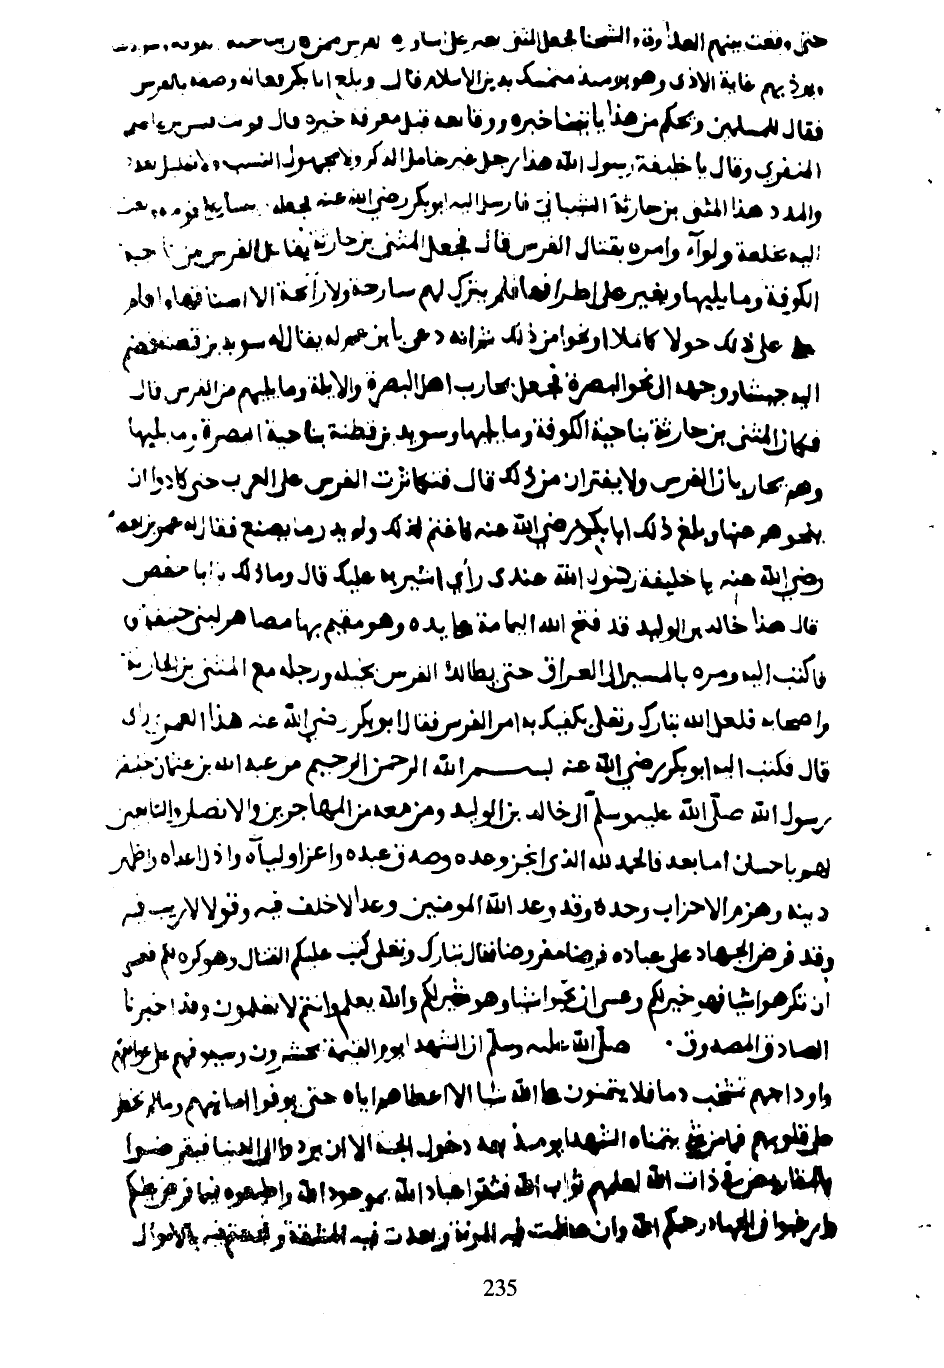 حتى وقعت بينهم العداوة والشحنا فجعل المثنى يغير على اساورة الفرس
ويوذيهم غاية الاذى وهو يوميذ متمسك بدين الاسلام قال وبلغ ابا بكر فعاله وصنعه بالفرس
فقال للمسلمين ويحكم من هذا ياتينا خبره ووقايعه قبل معرفة خبره قال فوثب قيس بن عاصم
المنقري وقال يا خليفة رسول الله هذا رجل غير خامل الذكر ولا مجهول النسب ولا قليل العدد
والمدد هذا المثنى بن حارثة الشيباني فارسل اليه ابو بكر رضي الله عنه فجعله قومه وبعث
اليه بخلعة ولوآء وامره بقتال الفرس قال فجعل المثنى بن حارثة يقاتل الفرس من ناحية
الكوفة وما يليها ويغير على اطرافها فلم يترك لهم سارحة ولا رائحة الا استاقها واقام
على ذلك حولا كاملا او نحوا من ذلك ثم انه دعى بابن عم له يقال له سويد بن قطنة فضم
اليه جيشا ووجهه الى نحو البصرة فجعل يحارب اهل البصرة والابلة وما يليهم من الفرس قال
فكان المثنى بن حارثة بناحية الكوفة وما يليها وسويد بن قطنة بناحية البصرة وما يليها
وهم يحاربان الفرس ولا يفتران من ذلك قال فتكاثرت الفرس على العرب حتى كادوا ان
عنها وبلغ ذلك ابا بكر رضي الله عنه فاغتم لذلك ولم يدر ما يصنع فقال له عمر
رضي الله عنه يا خليفة رسول الله عندى رأي اشير به عليك قال وما ذلك يا ابا حفص
قال هذا خالد بن الوليد قد فتح الله اليمامة على يده وهو مقيم بها مصاهر لبني حنيفة
فاكتب اليه ومره بالمسير الى العراق حتى يطا لك الفرس بخيله ورجله مع المثنى بن الحارثة
واصحابه فلعل الله تبارك وتعلى يكفيك به امر الفرس فقال ابو بكر رضي الله عنه هذا لعمري راى
قال فكتب اليه ابو بكر رضي الله عنه بسم الله الرحمن الرحيم من عبد الله بن عثمان خليفة
رسول الله صلى الله عليه وسلم الى خالد بن الوليد ومن معه من المهاجرين والانصار والتابعين
لهم باحسان اما بعد فالحمد لله الذي انجز وعده وصدق عبده واعز اولياه واذل اعداه واظهر
دينه وهزم الاحزاب وحده وقد وعد الله المومنين وعدا لا خلف فيه وقولا لا ريب فيه
وقد فرض الجهاد على عباده فرضا مفروضا فقال تبارك وتعلى كتب عليكم القتال وهو كره لكم فعسى
ان تكرهوا شيا فهو خير لكم وعسى ان تحبوا شيا وهو شر لكم والله يعلم وانتم لا تعلمون وقد اخبرنا
الصادق المصدوق صلى الله عليه وسلم ان الشهدا يوم القيمة يحشرون وسيوفهم على عواتقهم
واوداجهم تشخب دما فلا يتمنون على الله شيا الا اعطاهم اياه حتى يوفوا امانيهم وما لم يخطر
على قلوبهم فما من شئ يتمناه الشهدا يوميذ بعد دخول الجنة الا ان يردوا الى الدنيا فيقرضوا
بالمقاريض في ذات الله لعلمهم ثواب الله فثقوا عباد الله بموعود الله واطيعوه فيما فرض عليكم
وارغبوا في الجهاد رحمكم الله وان عظمت فيه المونة وبعدت فيه الشقة وفجعتم فيه بالاموال
235